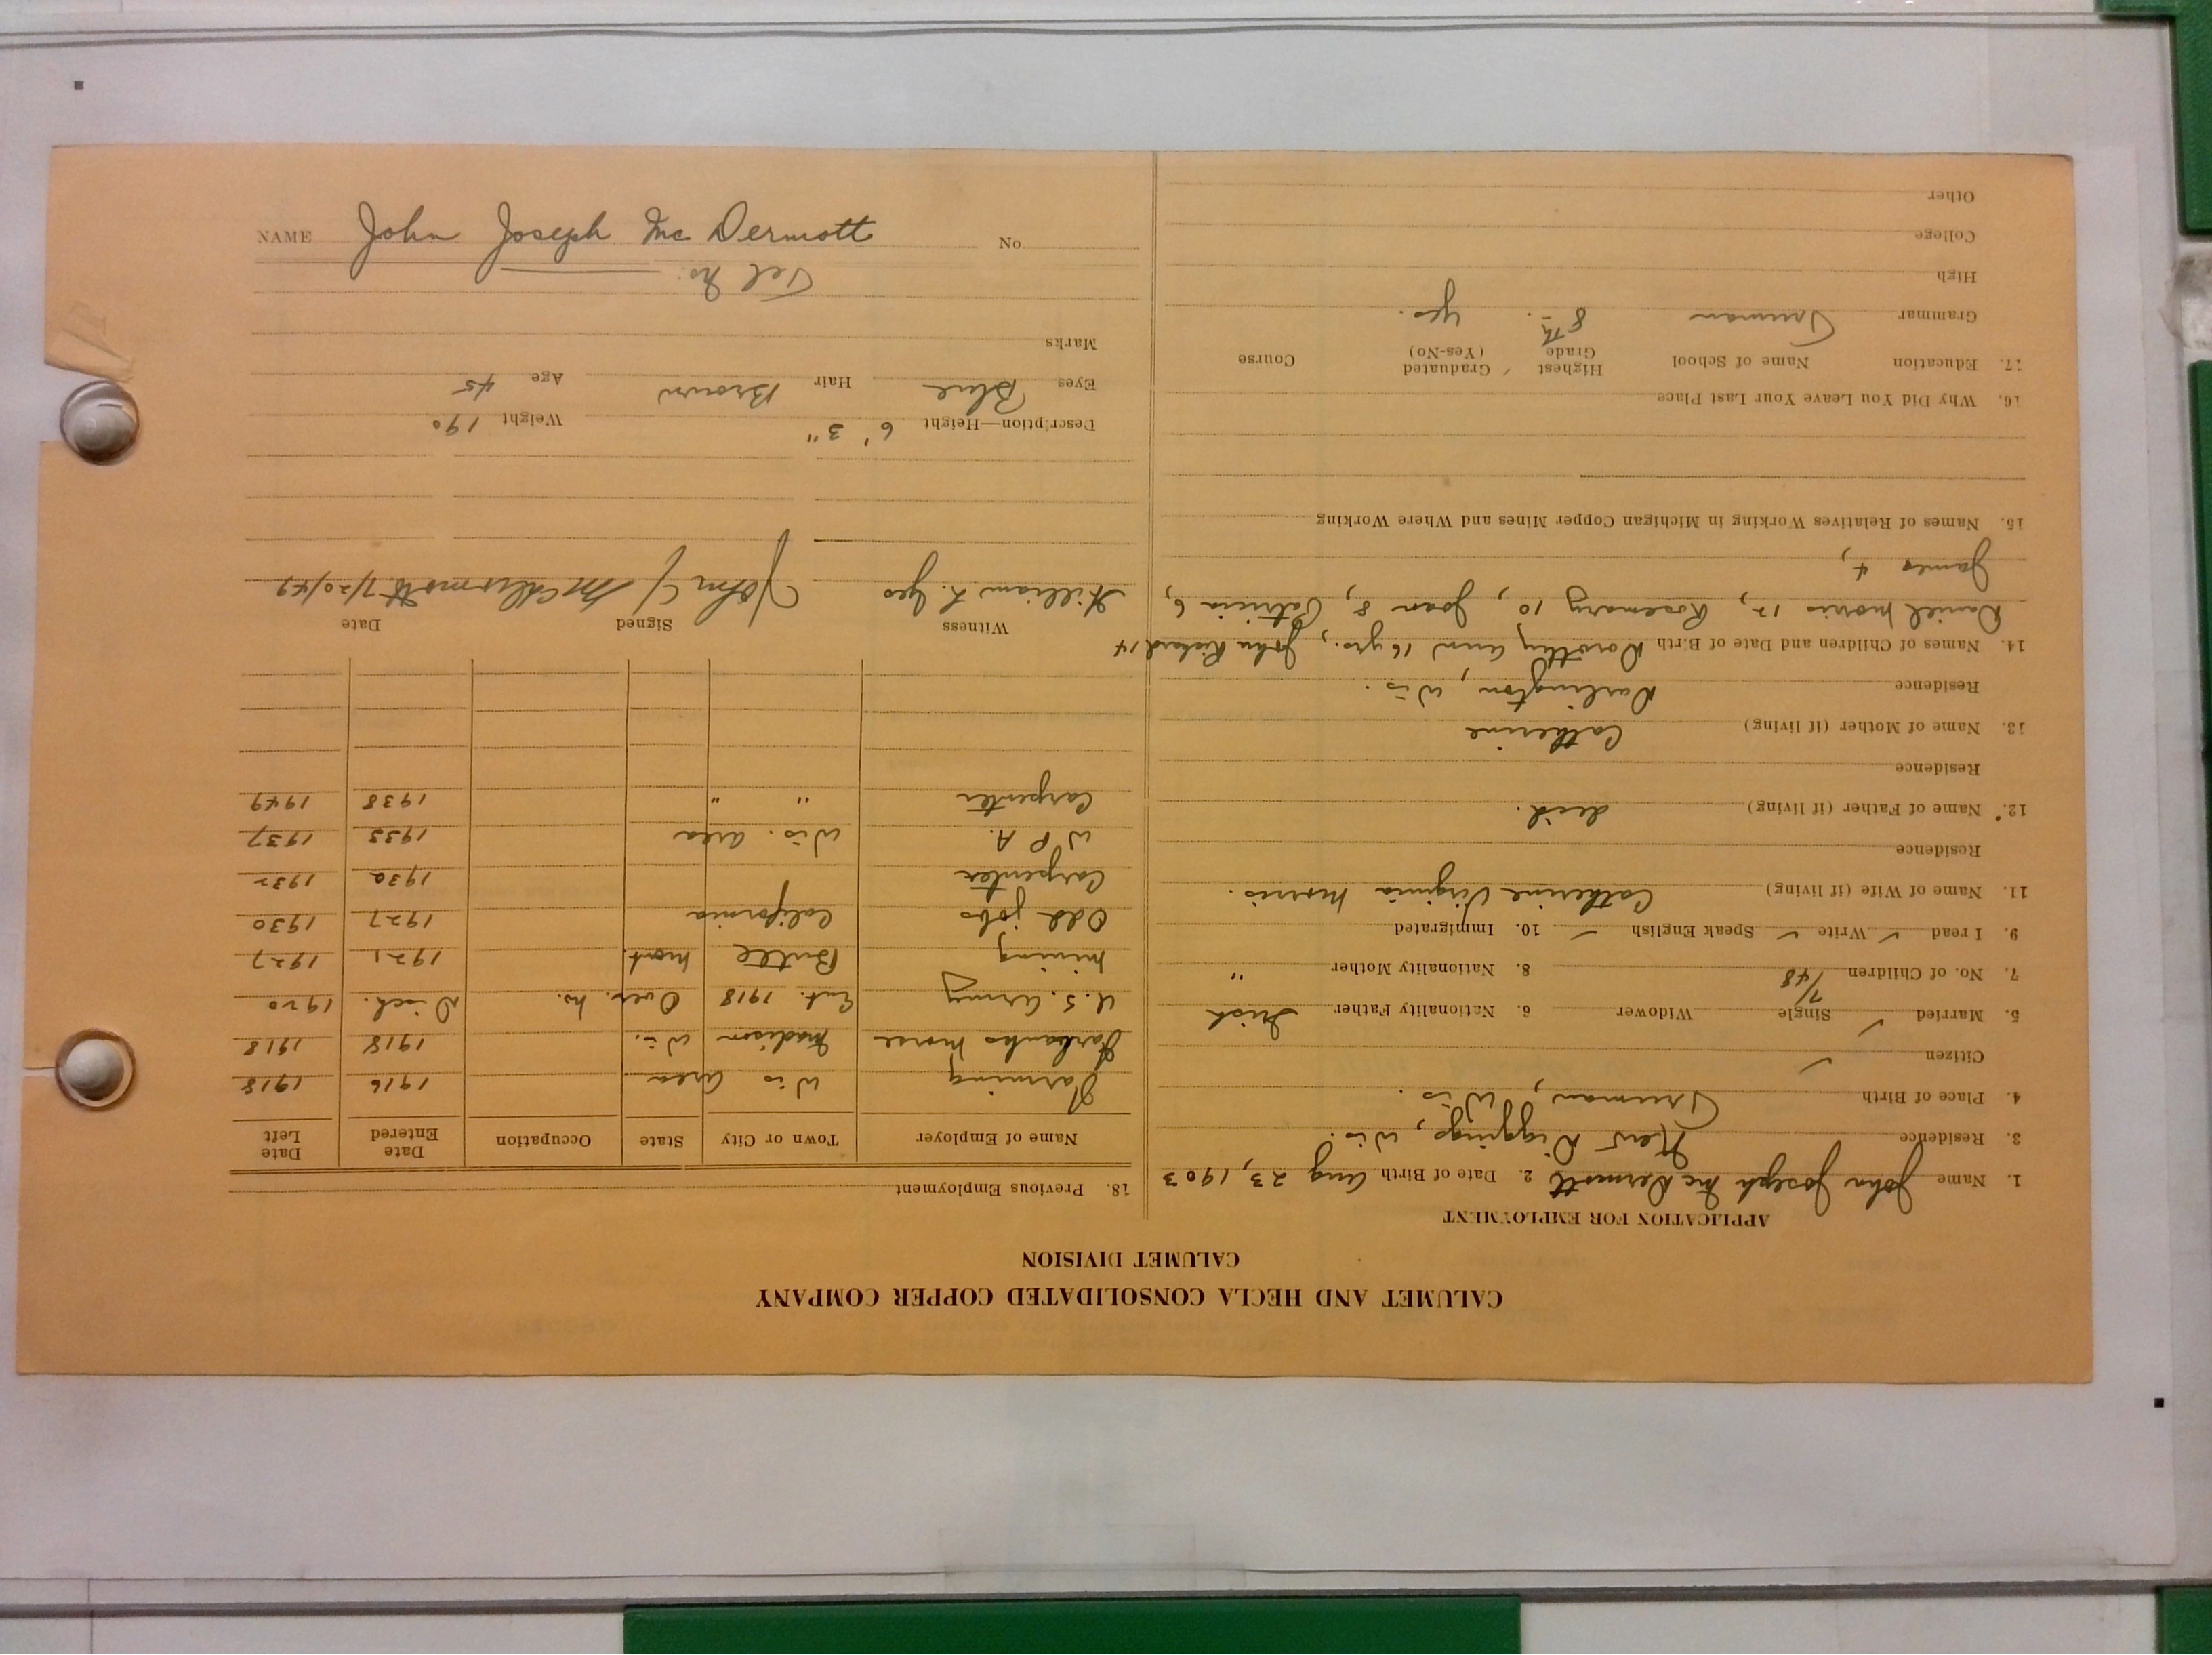 CALUMET AND HECLA CONSOLIDATED COPPER COMPANY
CALUMET DIVISION
APPLICATION FOR EMPLOYMENT
1. Name John Joseph McDermott 2. Date of Birth Aug 23, 1903
3. Residence New Diggings, Wis.
4. Place of Birth Truman, Wis.
Citizen ✓
5. Married ✓ Single Widower 6. Nationality Father Irish
7. No. of Children 7/48 8. Nationality Mother "
9. I read ✓ Write ✓ Speak English ✓ 10. Immigrated
11. Name of Wife (if living) Catherine Virginia Morris.
Residence
12. Name of Father (if living) decd.
Residence
13. Name of Mother (if living) Catherine
Residence Darlington, Wis.
14. Names of Children and Date of Birth Dorothy Ann 16 yrs., John Richard 14
Daniel Morris 12, Rosemary 10, Joan 8, Patricia 6,
James 4,
15. Names of Relatives Working in Michigan Copper Mines and Where Working
16. Why Did You Leave Your Last Place
17. Education Name of School Highest Grade Graduated (Yes-No) Course
Grammar Truman 8th. yes.
High
College
Other
18. Previous Employment
Name of Employer Town or City State Occupation Date Entered Date Left
Farming Wis Area 1916 1918
Fairbanks Morse Madison Wis. 1918 1918
U.S. Army Ent. 1918 Over. hs. Disch. 1920
Mining Butte Mont. 1921 1927
Odd jobs California 1927 1930
Carpenter 1930 1932
W P A. Wis. area 1933 1937
Carpenter " " 1938 1949
Witness Signed Date
William L. John J McDermott 7/20/49
Description—Height 6' 3" Weight 190
Eyes Blue Hair Brown Age 45
Marks
Tel No.
NAME John Joseph McDermott No.